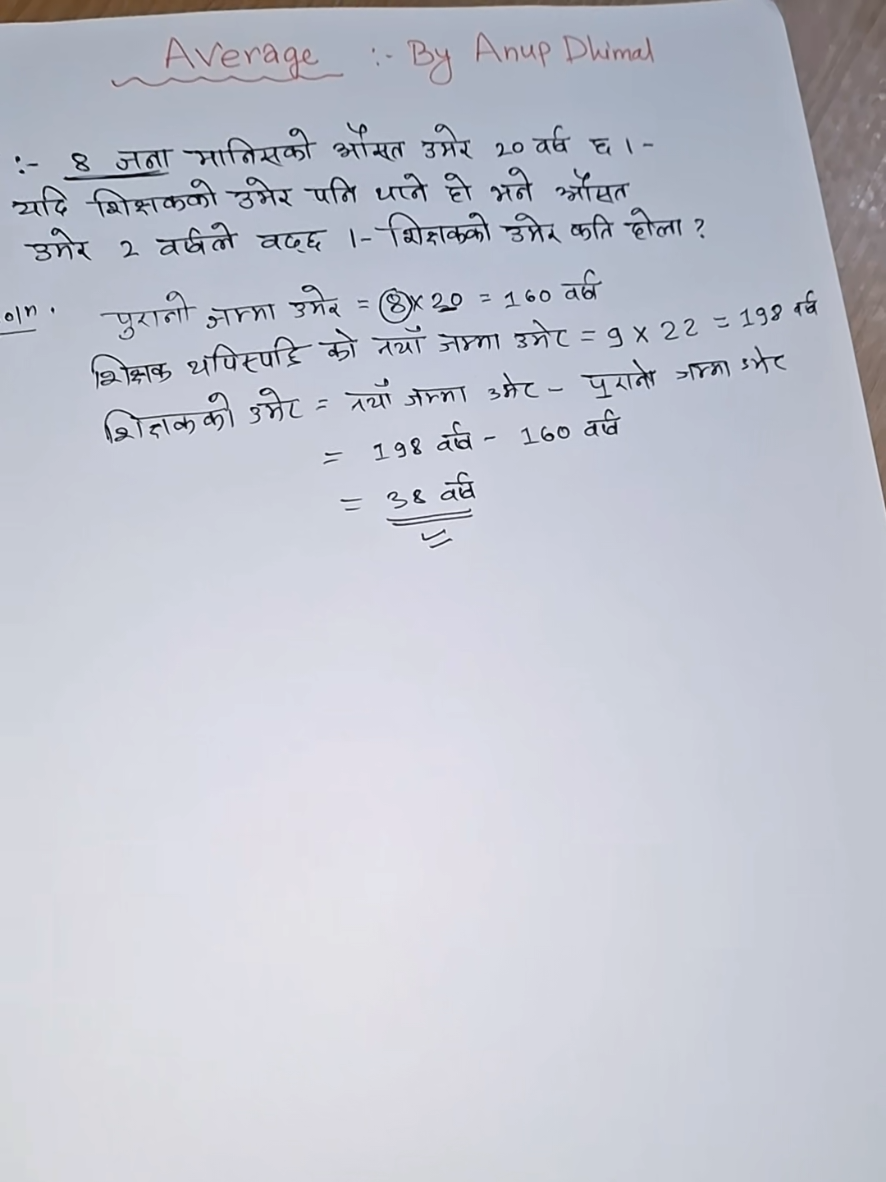 Average :- By Anup Dhimal
:- 8 जना मानिसको औसत उमेर 20 वर्ष छ ।-
यदि शिक्षकको उमेर पनि थप्ने हो भने औसत
उमेर 2 वर्षले बढ्छ ।- शिक्षकको उमेर कति होला ?
o/n. पुरानो जम्मा उमेर = 8 x 20 = 160 वर्ष
शिक्षक थपिएपछि को नयाँ जम्मा उमेर = 9 x 22 = 198 वर्ष
शिक्षकको उमेर = नयाँ जम्मा उमेर - पुरानो जम्मा उमेर
= 198 वर्ष - 160 वर्ष
= 38 वर्ष